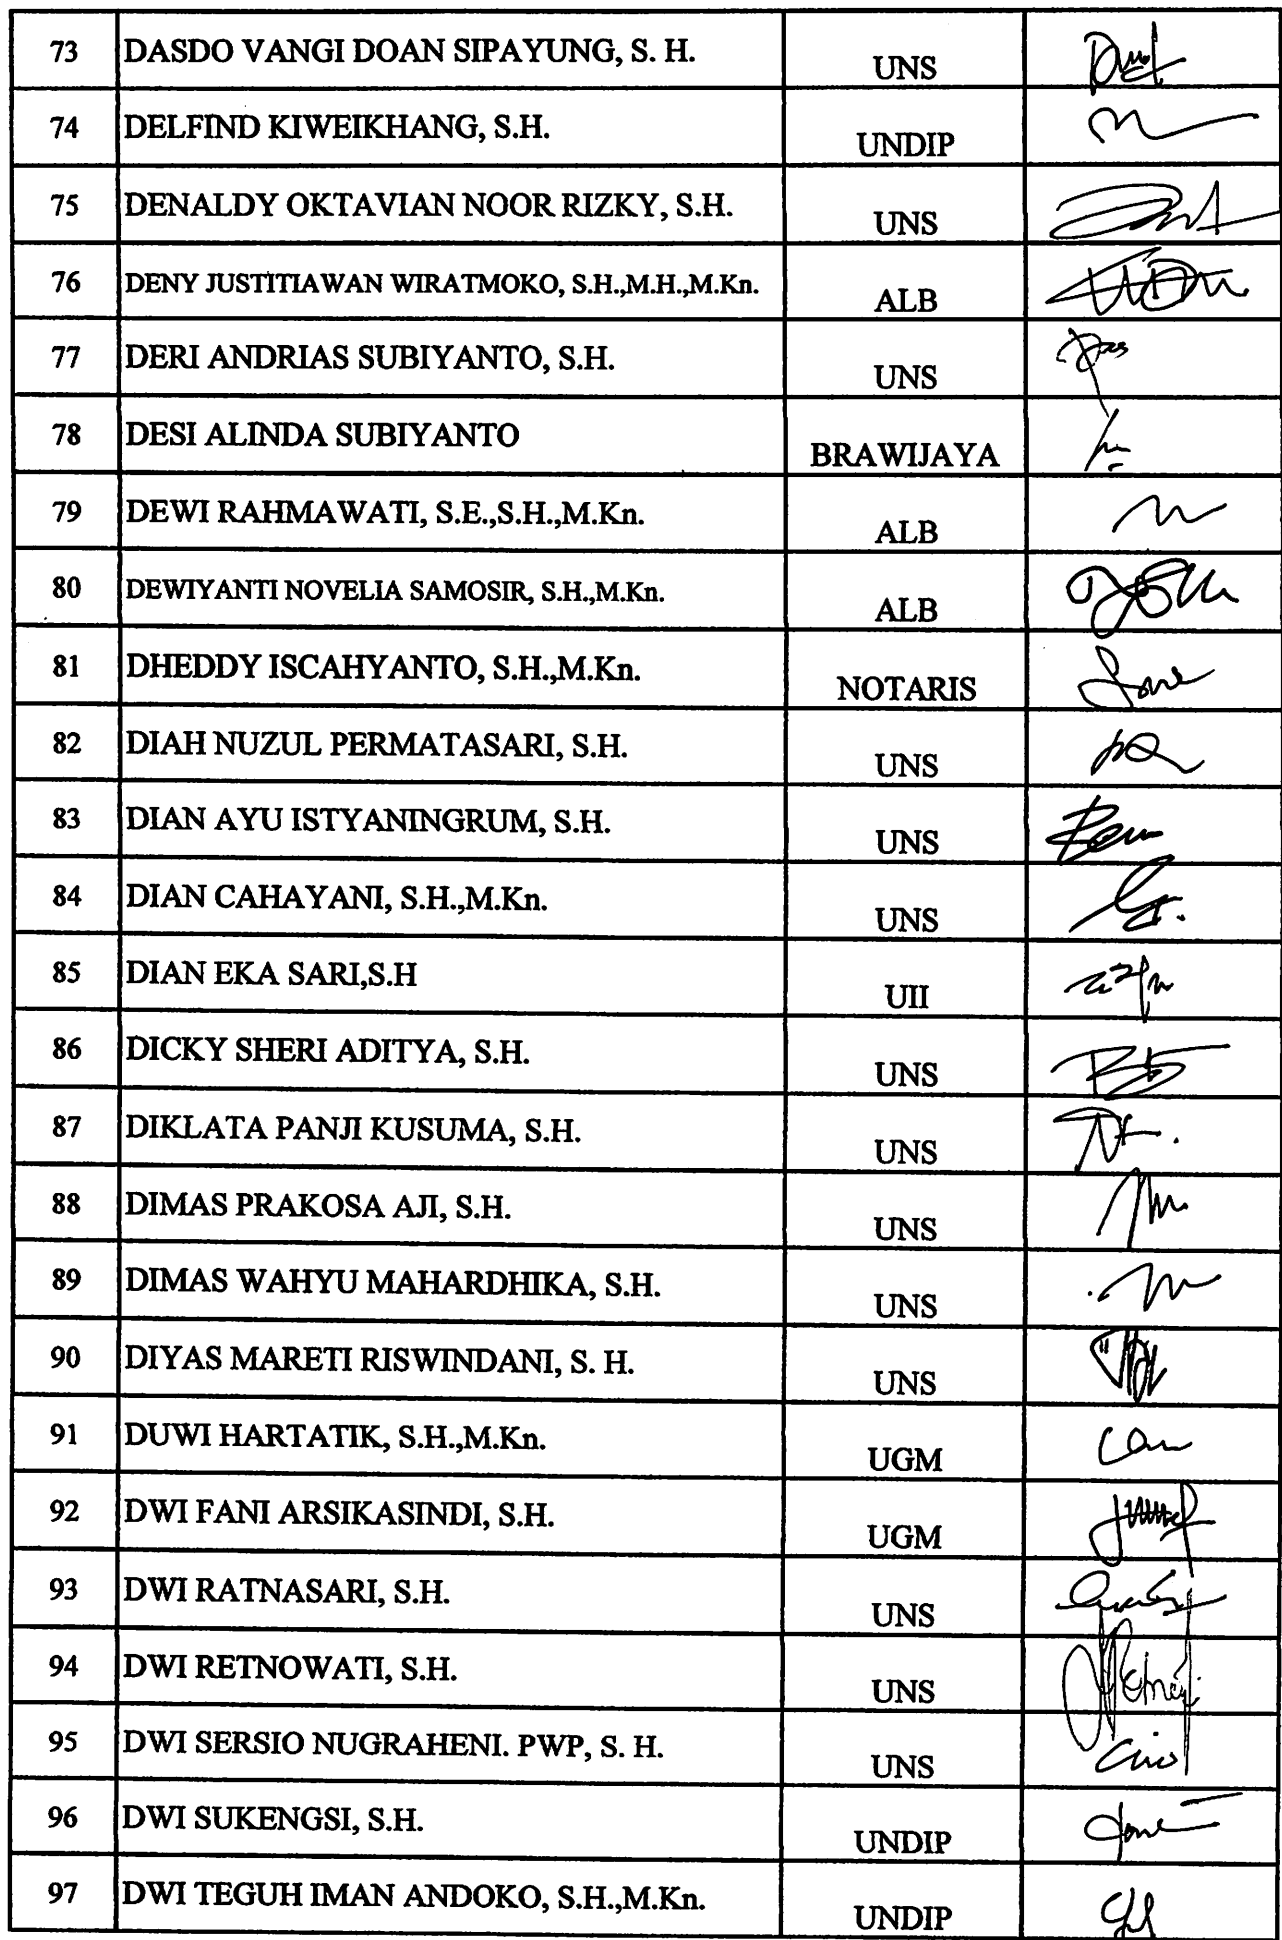 73 DASDO VANGI DOAN SIPAYUNG, S. H. UNS
74 DELFIND KIWEIKHANG, S.H. UNDIP
75 DENALDY OKTAVIAN NOOR RIZKY, S.H. UNS
76 DENY JUSTITIAWAN WIRATMOKO, S.H.,M.H.,M.Kn. ALB
77 DERI ANDRIAS SUBIYANTO, S.H. UNS
78 DESI ALINDA SUBIYANTO BRAWIJAYA
79 DEWI RAHMAWATI, S.E.,S.H.,M.Kn. ALB
80 DEWIYANTI NOVELIA SAMOSIR, S.H.,M.Kn. ALB
81 DHEDDY ISCAHYANTO, S.H.,M.Kn. NOTARIS
82 DIAH NUZUL PERMATASARI, S.H. UNS
83 DIAN AYU ISTYANINGRUM, S.H. UNS
84 DIAN CAHAYANI, S.H.,M.Kn. UNS
85 DIAN EKA SARI,S.H UII
86 DICKY SHERI ADITYA, S.H. UNS
87 DIKLATA PANJI KUSUMA, S.H. UNS
88 DIMAS PRAKOSA AJI, S.H. UNS
89 DIMAS WAHYU MAHARDHIKA, S.H. UNS
90 DIYAS MARETI RISWINDANI, S. H. UNS
91 DUWI HARTATIK, S.H.,M.Kn. UGM
92 DWI FANI ARSIKASINDI, S.H. UGM
93 DWI RATNASARI, S.H. UNS
94 DWI RETNOWATI, S.H. UNS
95 DWI SERSIO NUGRAHENI. PWP, S. H. UNS
96 DWI SUKENGSI, S.H. UNDIP
97 DWI TEGUH IMAN ANDOKO, S.H.,M.Kn. UNDIP